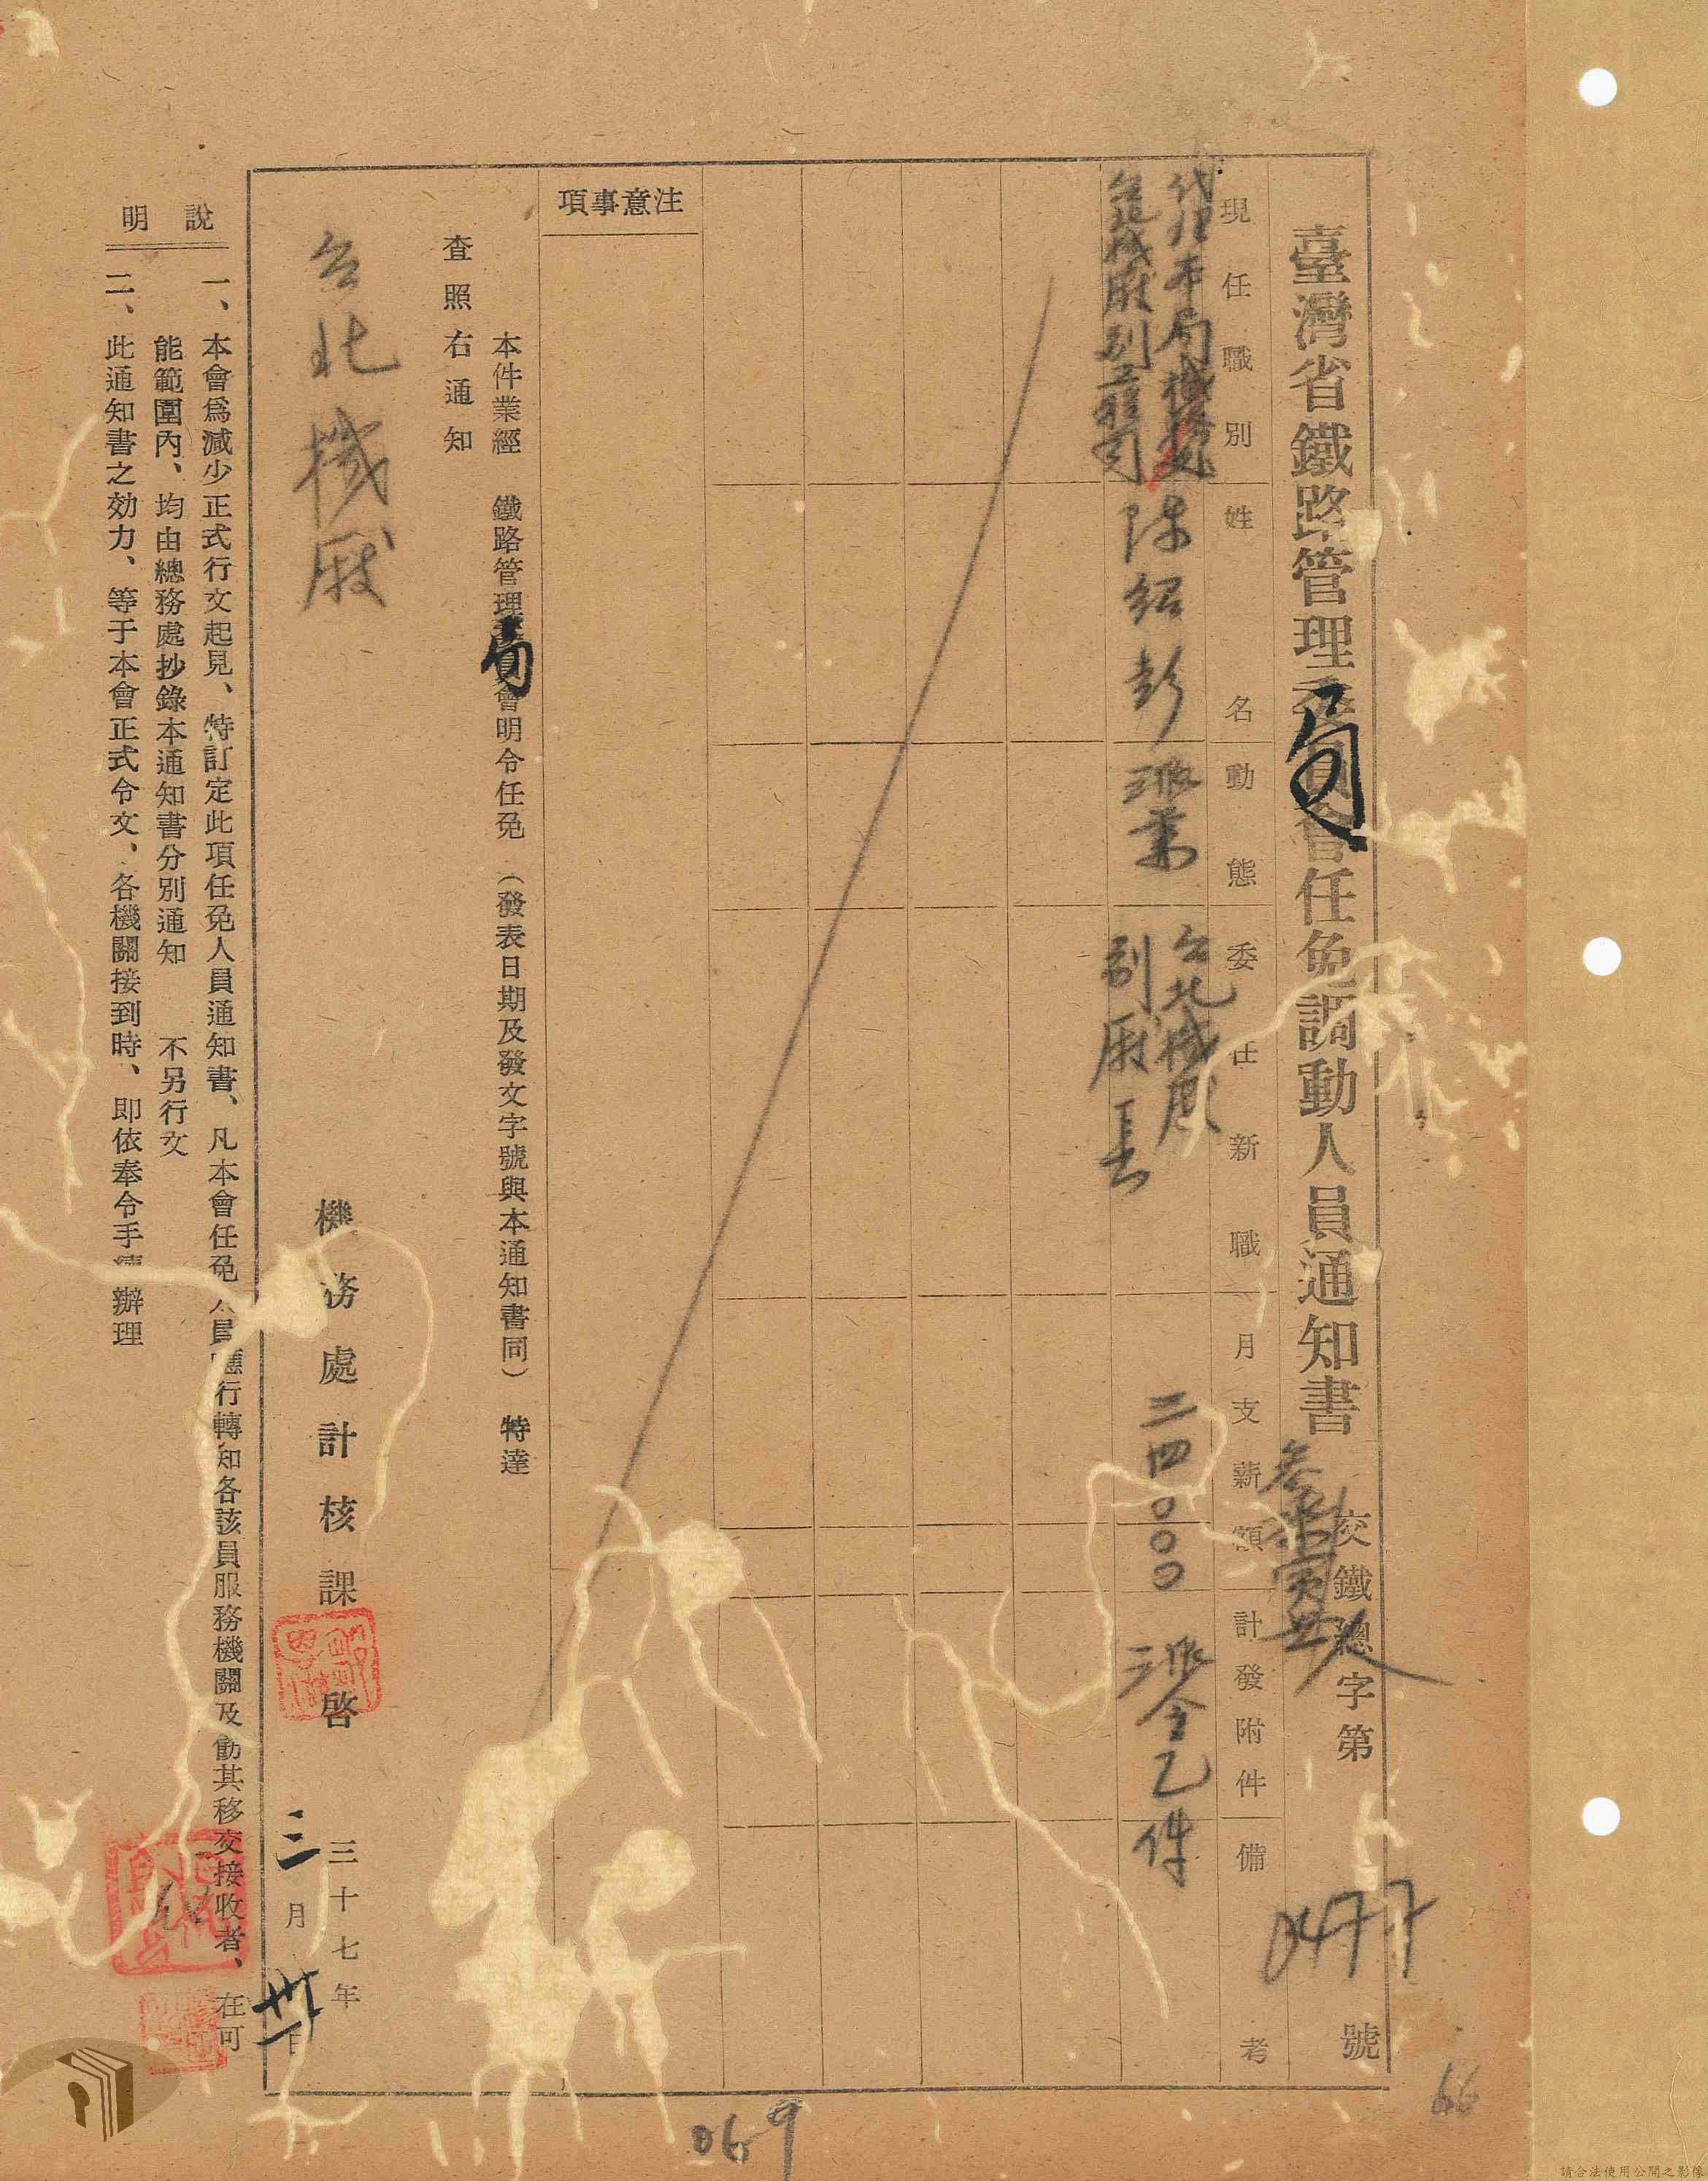 臺灣省鐵路管理局任免調動人員通知書
交鐵總字第
0477
號
現任職別
姓名
動態
委任新職
月支薪額
計發附件
備考
代理本局機務處
台北機廠副工程司
陳紹彭
派業
台北機廠
副廠長
三四〇〇〇
派令乙件
注意事項
本件業經 鐵路管理局會明令任免 (發表日期及發文字號與本通知書同) 特達
查照右通知
台北機廠
機務處計核課 啓
三十七年
三月卅一日
說明
一、本會爲減少正式行文起見、特訂定此項任免人員通知書、凡本會任免人員應行轉知各該員服務機關及動其移交接收者、在可
能範圍內、均由總務處抄錄本通知書分別通知 不另行文
二、此通知書之効力、等于本會正式令文、各機關接到時、即依奉令手續辦理
069
66
請合法使用公開之影像